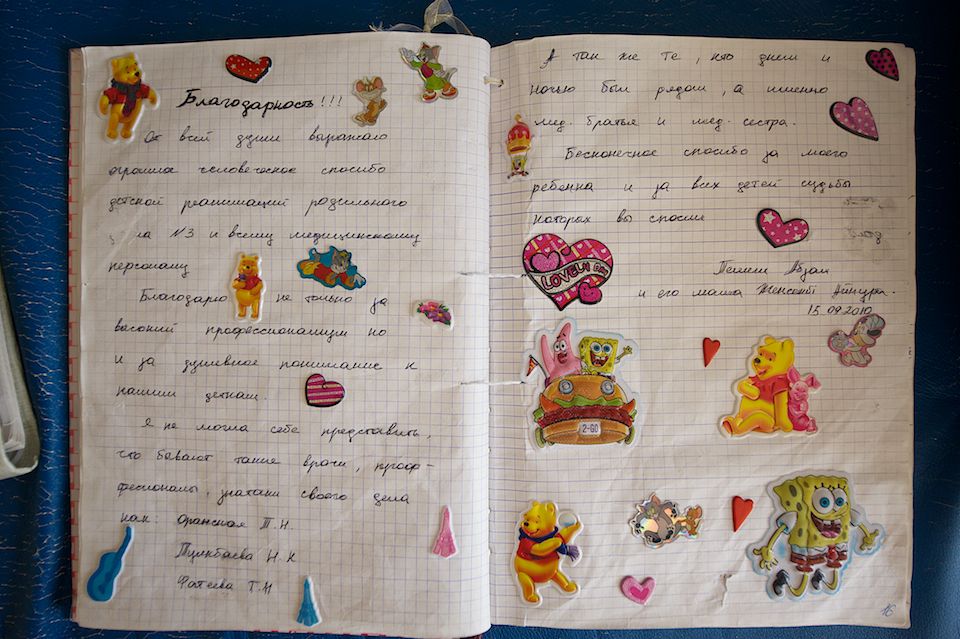 Благодарность!!!
От всей души выражаю
огромное человеческое спасибо
детской реанимаций родильного
ма N3 и всему медицинскому
персоналу
Благодарю не только за
высокий профессионализм но
и за душевное понимание к
нашим деткам.
Я не могла себе представить,
что бывают такие врачи, проф-
фесионалы, знатоки своего дела
как: Оранская Т.Н.
Н.К
Фатеева Т.Н
А так же те, кто днём и
ночью был рядом, а именно
мед. братья и мед. сестра.
Бесконечное спасибо за моего
ребенка и за всех детей судьбы
которых вы спасли
LOVELY
и его мама Айнура.
15.09.2010
2-GO
16